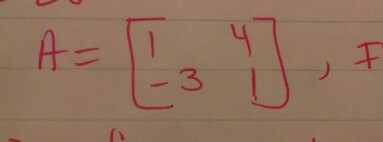 A = [1 4
-3 1], F